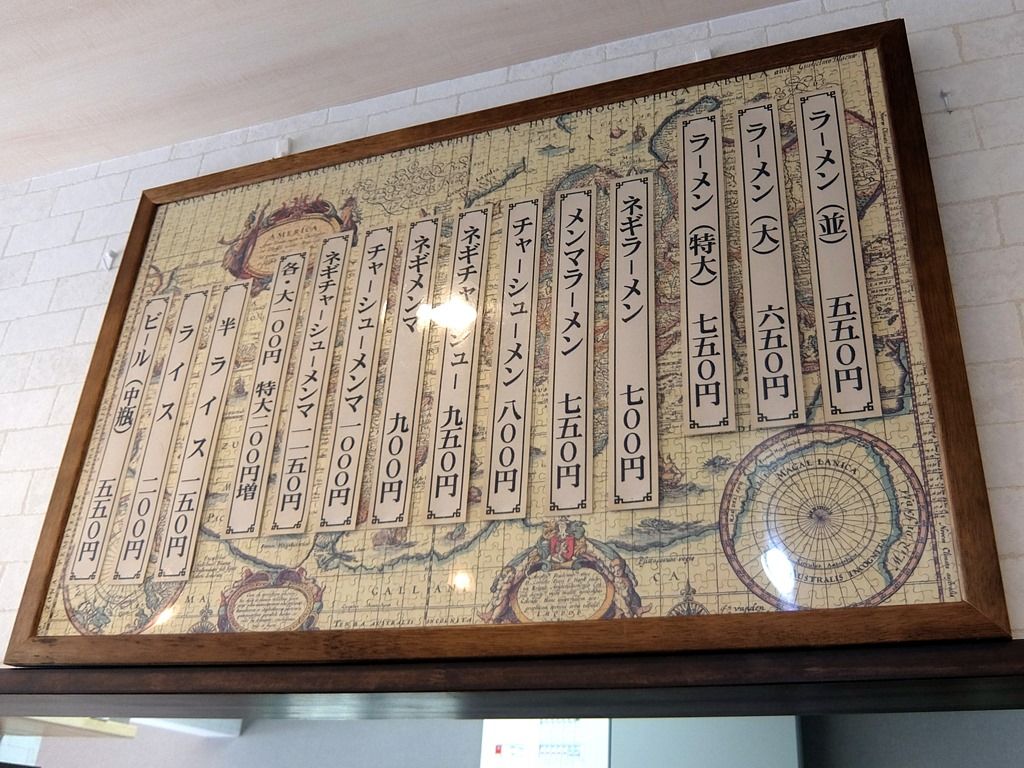 ラーメン（並） 五五〇円
ラーメン（大） 六五〇円
ラーメン（特大） 七五〇円
ネギラーメン 七〇〇円
メンマラーメン 七五〇円
チャーシューメン 八〇〇円
ネギチャーシュー 九五〇円
ネギメンマ 九〇〇円
チャーシューメンマ 一〇〇〇円
ネギチャーシューメンマ 一一五〇円
各・大一〇〇円 特大二〇〇円増
半ライス 一五〇円
ライス 二〇〇円
ビール（中瓶） 五五〇円
AMERICA
MAGALLANICA
AUSTRALIS INCOGNITA
TERRA AUSTRALIS INCOGNITA